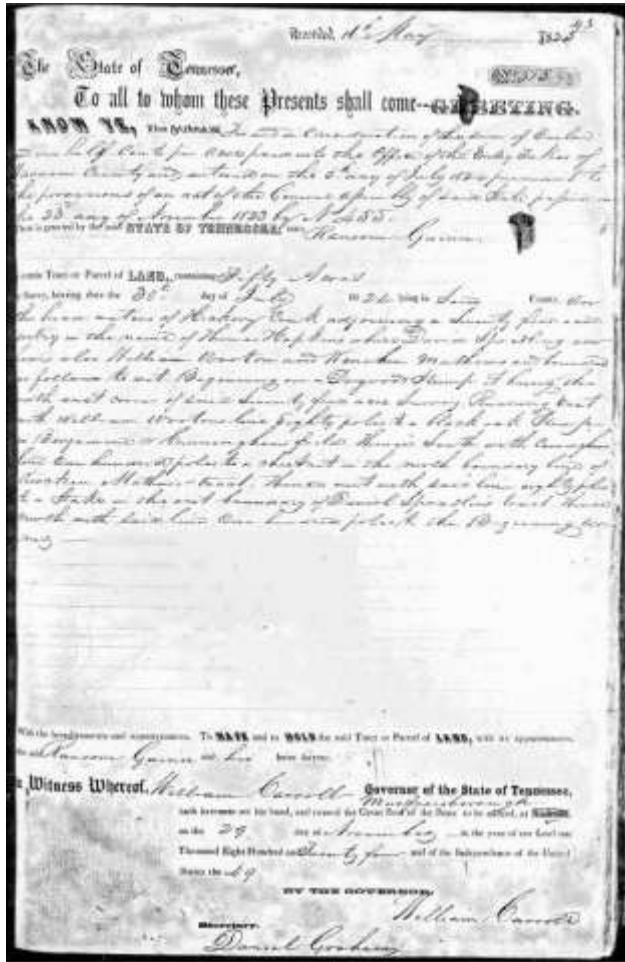 Recorded, 1st May 1825
The State of Tennessee,
To all to whom these Presents shall come--GREETING.
KNOW YE, That in consideration of the sum of
half Cents per acre paid into the Office of the Entry Taker of
County and entered on the day of July pursuant to
the provisions of an act of the General Assembly of said State passed on
the 23d day of November 1823 by No
there is granted by the said STATE OF TENNESSEE, unto
Ransom Gainer
a certain Tract or Parcel of LAND, containing Fifty Acres
by Survey, bearing date the 30th day of July 1824 lying in said County on
the head waters of Hickory Creek adjoining a Seventy five acre
entry in the name of Thomas Hopkins where Daniel now
lives also William Wooton and Mathews and bounded
as follows to wit Beginning on a Dogwood Stump it being the
corner of said Seventy five acre Survey Running East
with William Wootons line Eighty poles to a Black oak Stump
in Benjamin field thence South with
line One hundred poles to a in the north boundary line of
Mathews tract thence west with said line eighty poles
to a Stake in the east boundary of Daniel tract thence
north with said line One hundred poles to the Beginning
With the hereditaments and appurtenances. To HAVE and to HOLD the said Tract or Parcel of LAND, with its appurtenances,
Ransom Gainer and his heirs forever.
In Witness Whereof, William Carroll Governor of the State of Tennessee,
hath hereunto set his hand, and caused the Great Seal of the State to be affixed, at Murfreesborough
on the 29 day of November in the year of our Lord one
Thousand Eight Hundred and Twenty four and of the Independence of the United
States the 49
BY THE GOVERNOR,
William Carroll
Secretary.
Daniel Graham